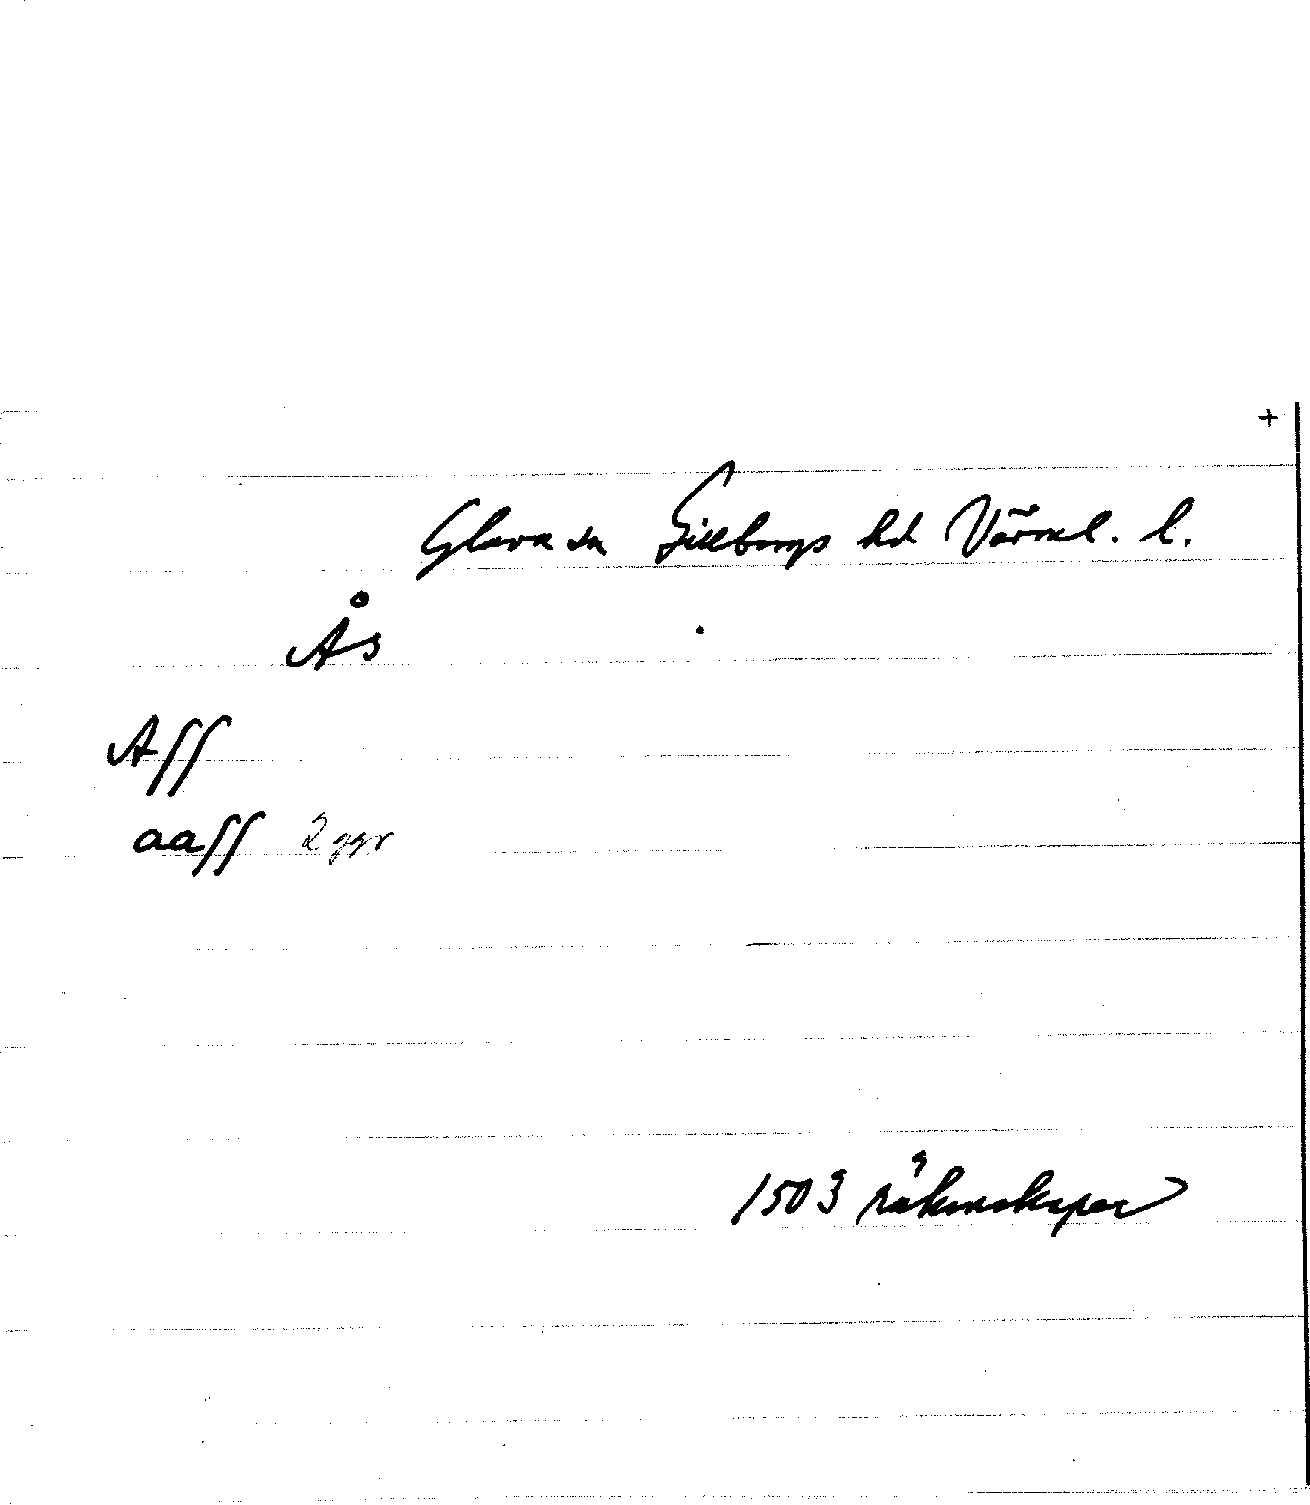 +
Glava sn Gillbergs hd Värml. l.
Ås
Aff
aaff 2 ggr
1503 räkenskaper